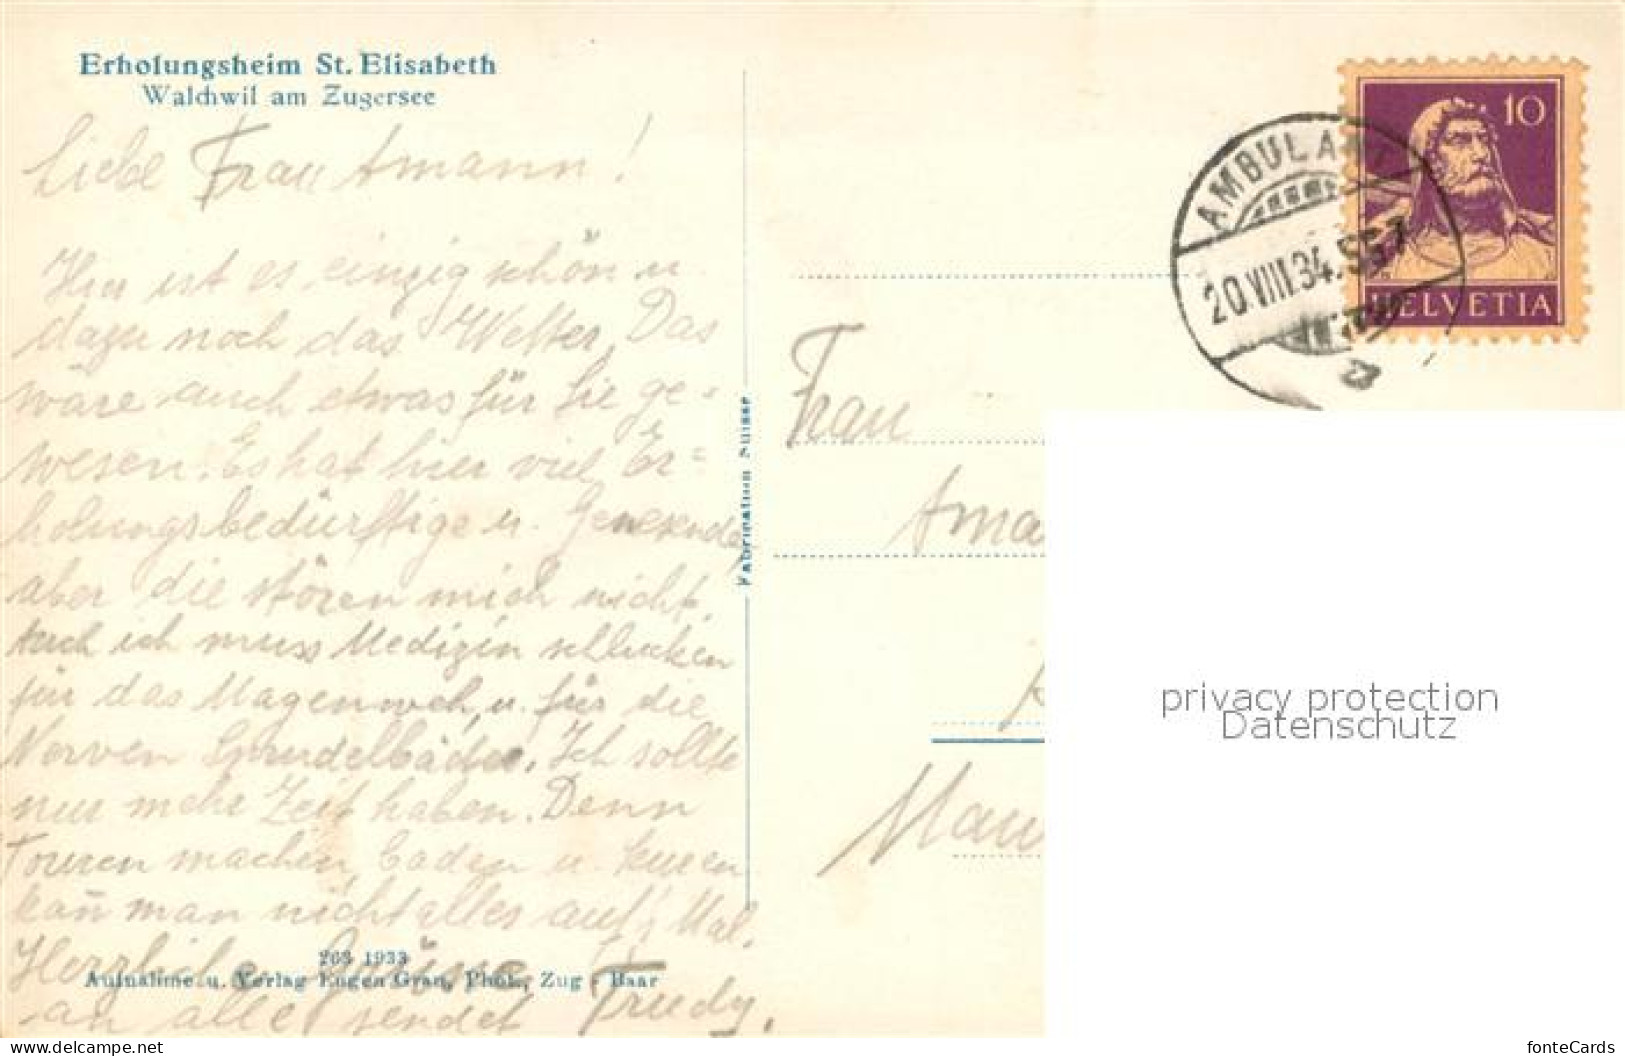 Erholungsheim St. Elisabeth
Walchwil am Zugersee
Liebe Frau Amann!
Hier ist es einzig schön u.
dazu noch das Wetter. Das
wäre auch etwas für Sie ge-
wesen. Es hat hier viel Er=
holungsbedürftige u. Genesende,
aber die stören mich nicht.
Auch ich muss Medizin schlucken
für das Magenweh, u. für die
Nerven Sprudelbäder. Ich sollte
nur mehr Zeit haben. Denn
Touren machen, baden u. kuren
kan̄ man nicht alles auf 1 Mal.
Herzliche Grüsse
an alle sendet Trudy.
263 1933
Aufnahme u. Verlag Eugen Grau, Phot., Zug - Baar
Fabrication Suisse
AMBULANT
20.VIII.34.
10
HELVETIA
Frau
Ama
Mau
privacy protection
Datenschutz
www.delcampe.net
fonteCards